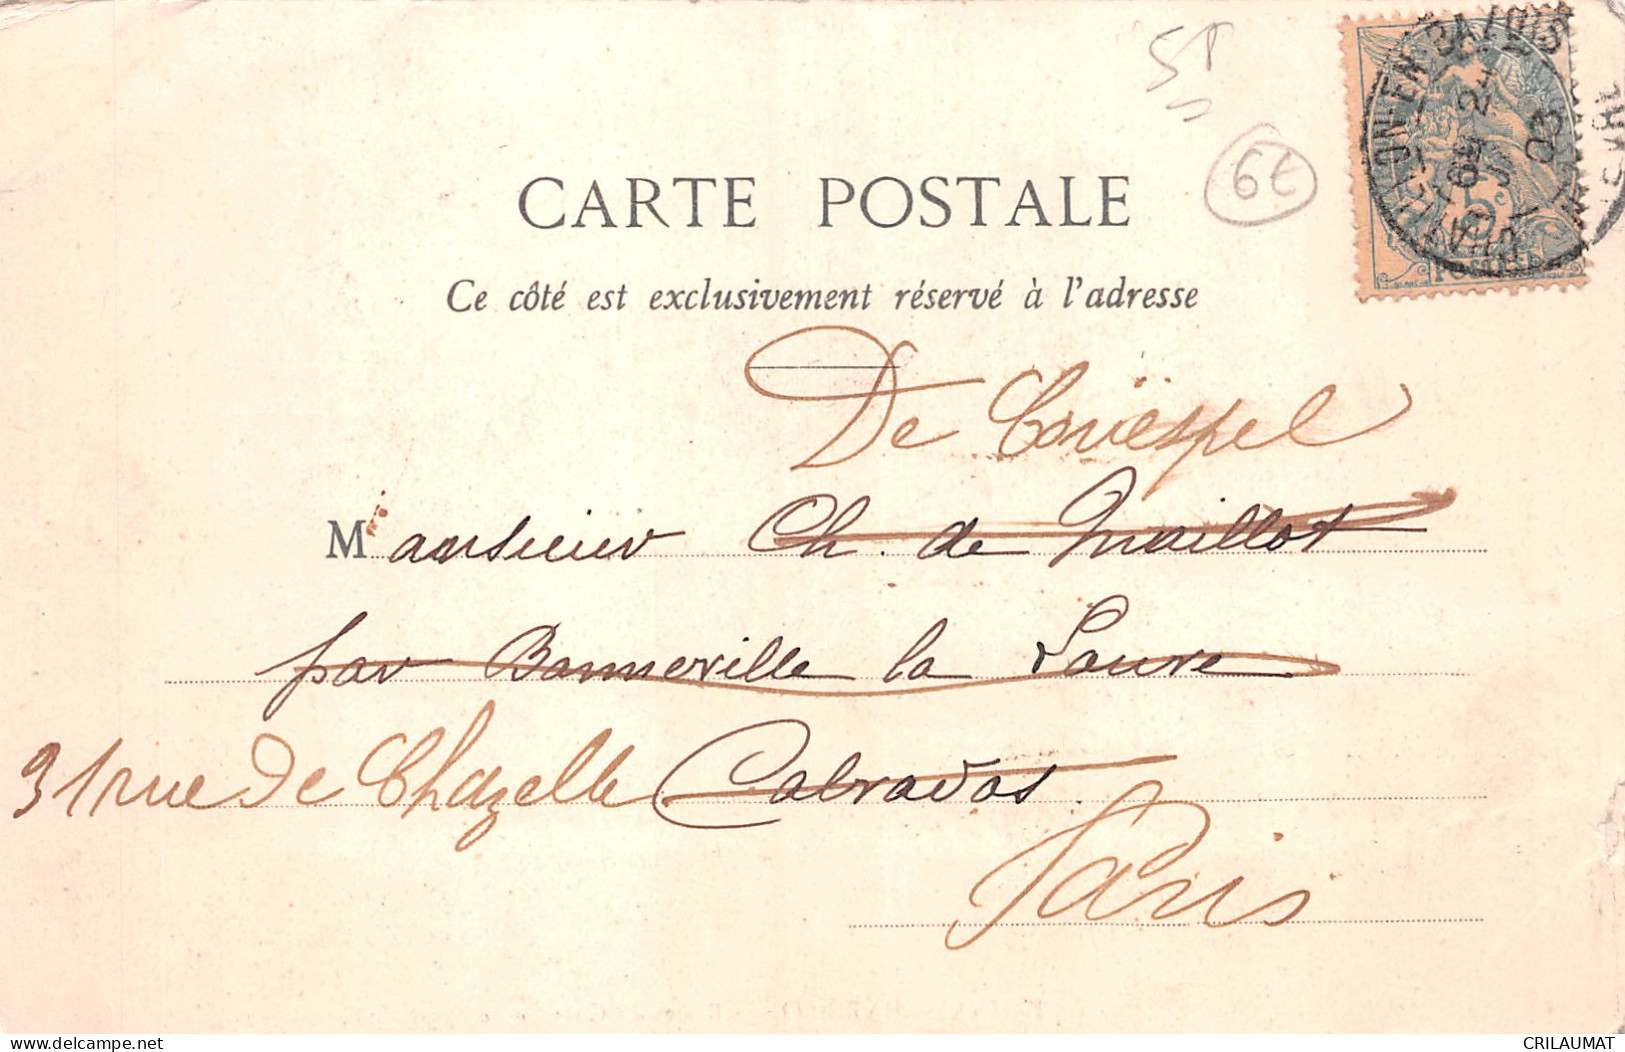 6t
CARTE POSTALE
Ce côté est exclusivement réservé à l'adresse
De
Monsieur Ch. de Maillot
par Banneville la
31 rue de Chazelle Calvados.
Paris
5
POSTES
www.delcampe.net
CRILAUMAT